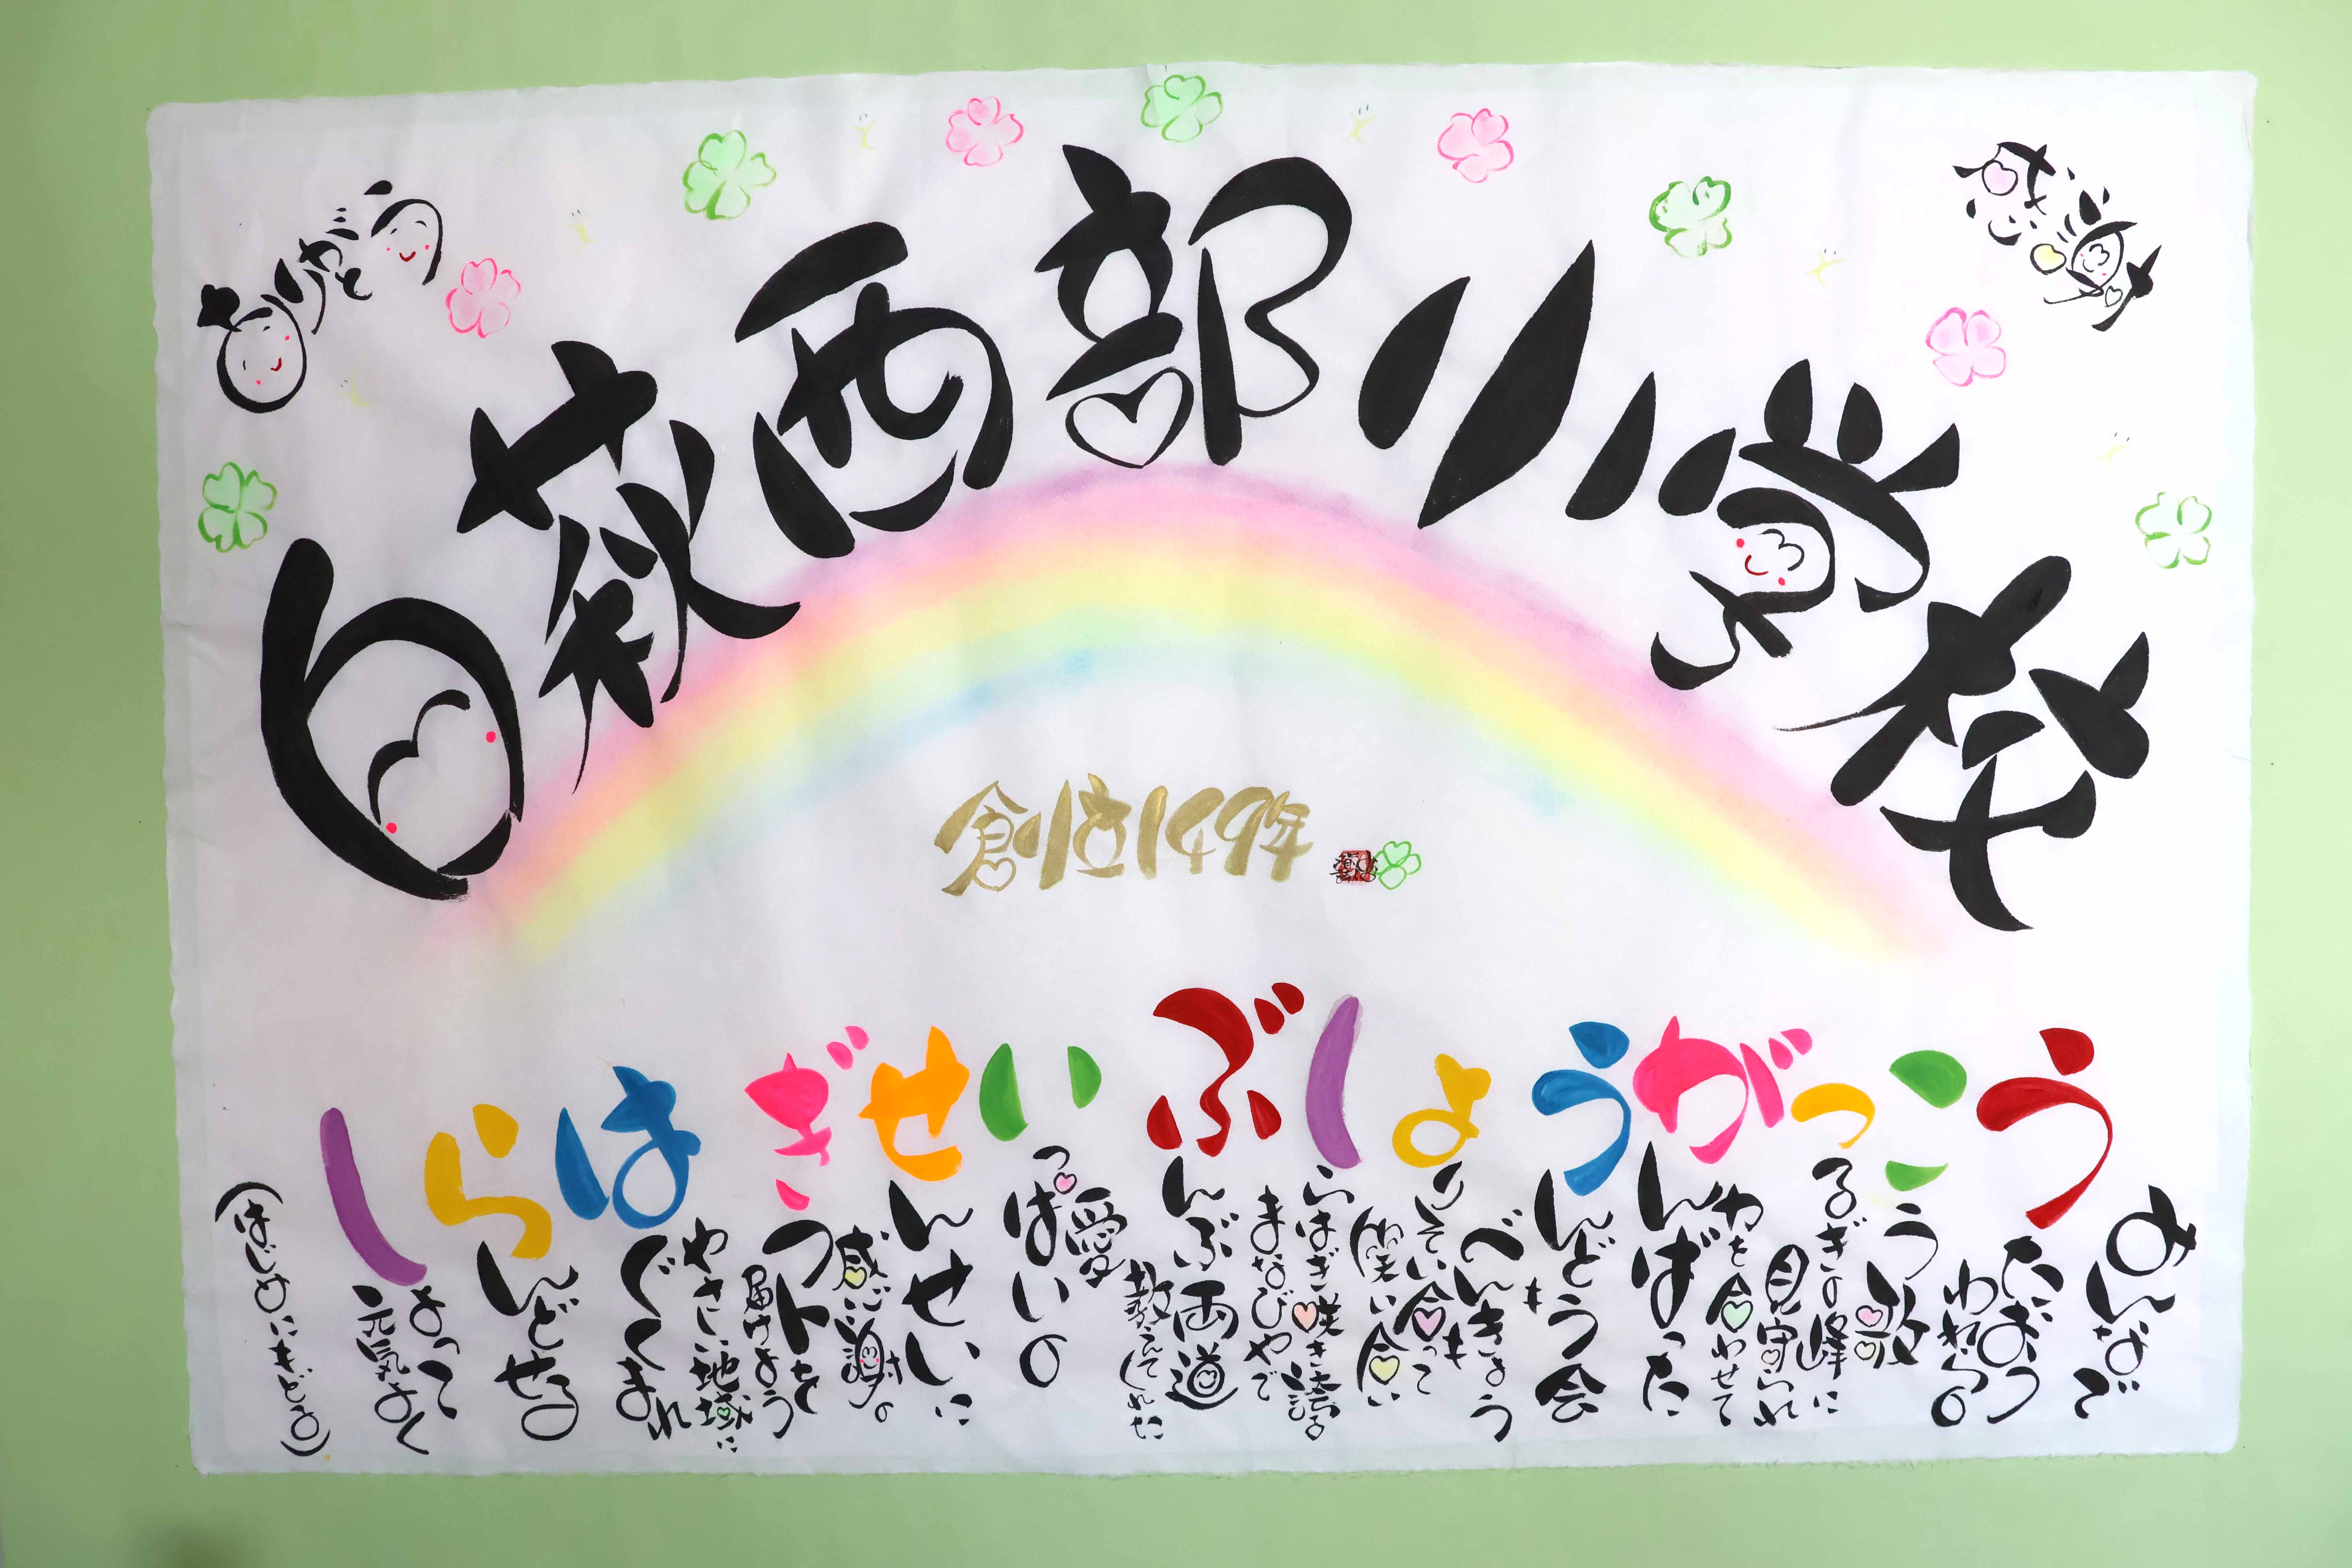 ありがとう
感謝
白萩西部小学校
創立149年
しらはぎせいぶしょうがっこう
みんなで
たおう
われらの
う歌
るぎの峰に
見守られ
力を合わせて
んばった
んどう会
べんきょうも
りそい合って
笑い合い
らはぎ咲き誇る
まなびやで
んぶ両道
教えてくれた
愛
っぱいの
んせいに
感謝の
フトを
届けよう
やさしい地域に
ぐくまれ
んどせる
ょって
元気よく
(はじめにもどる)